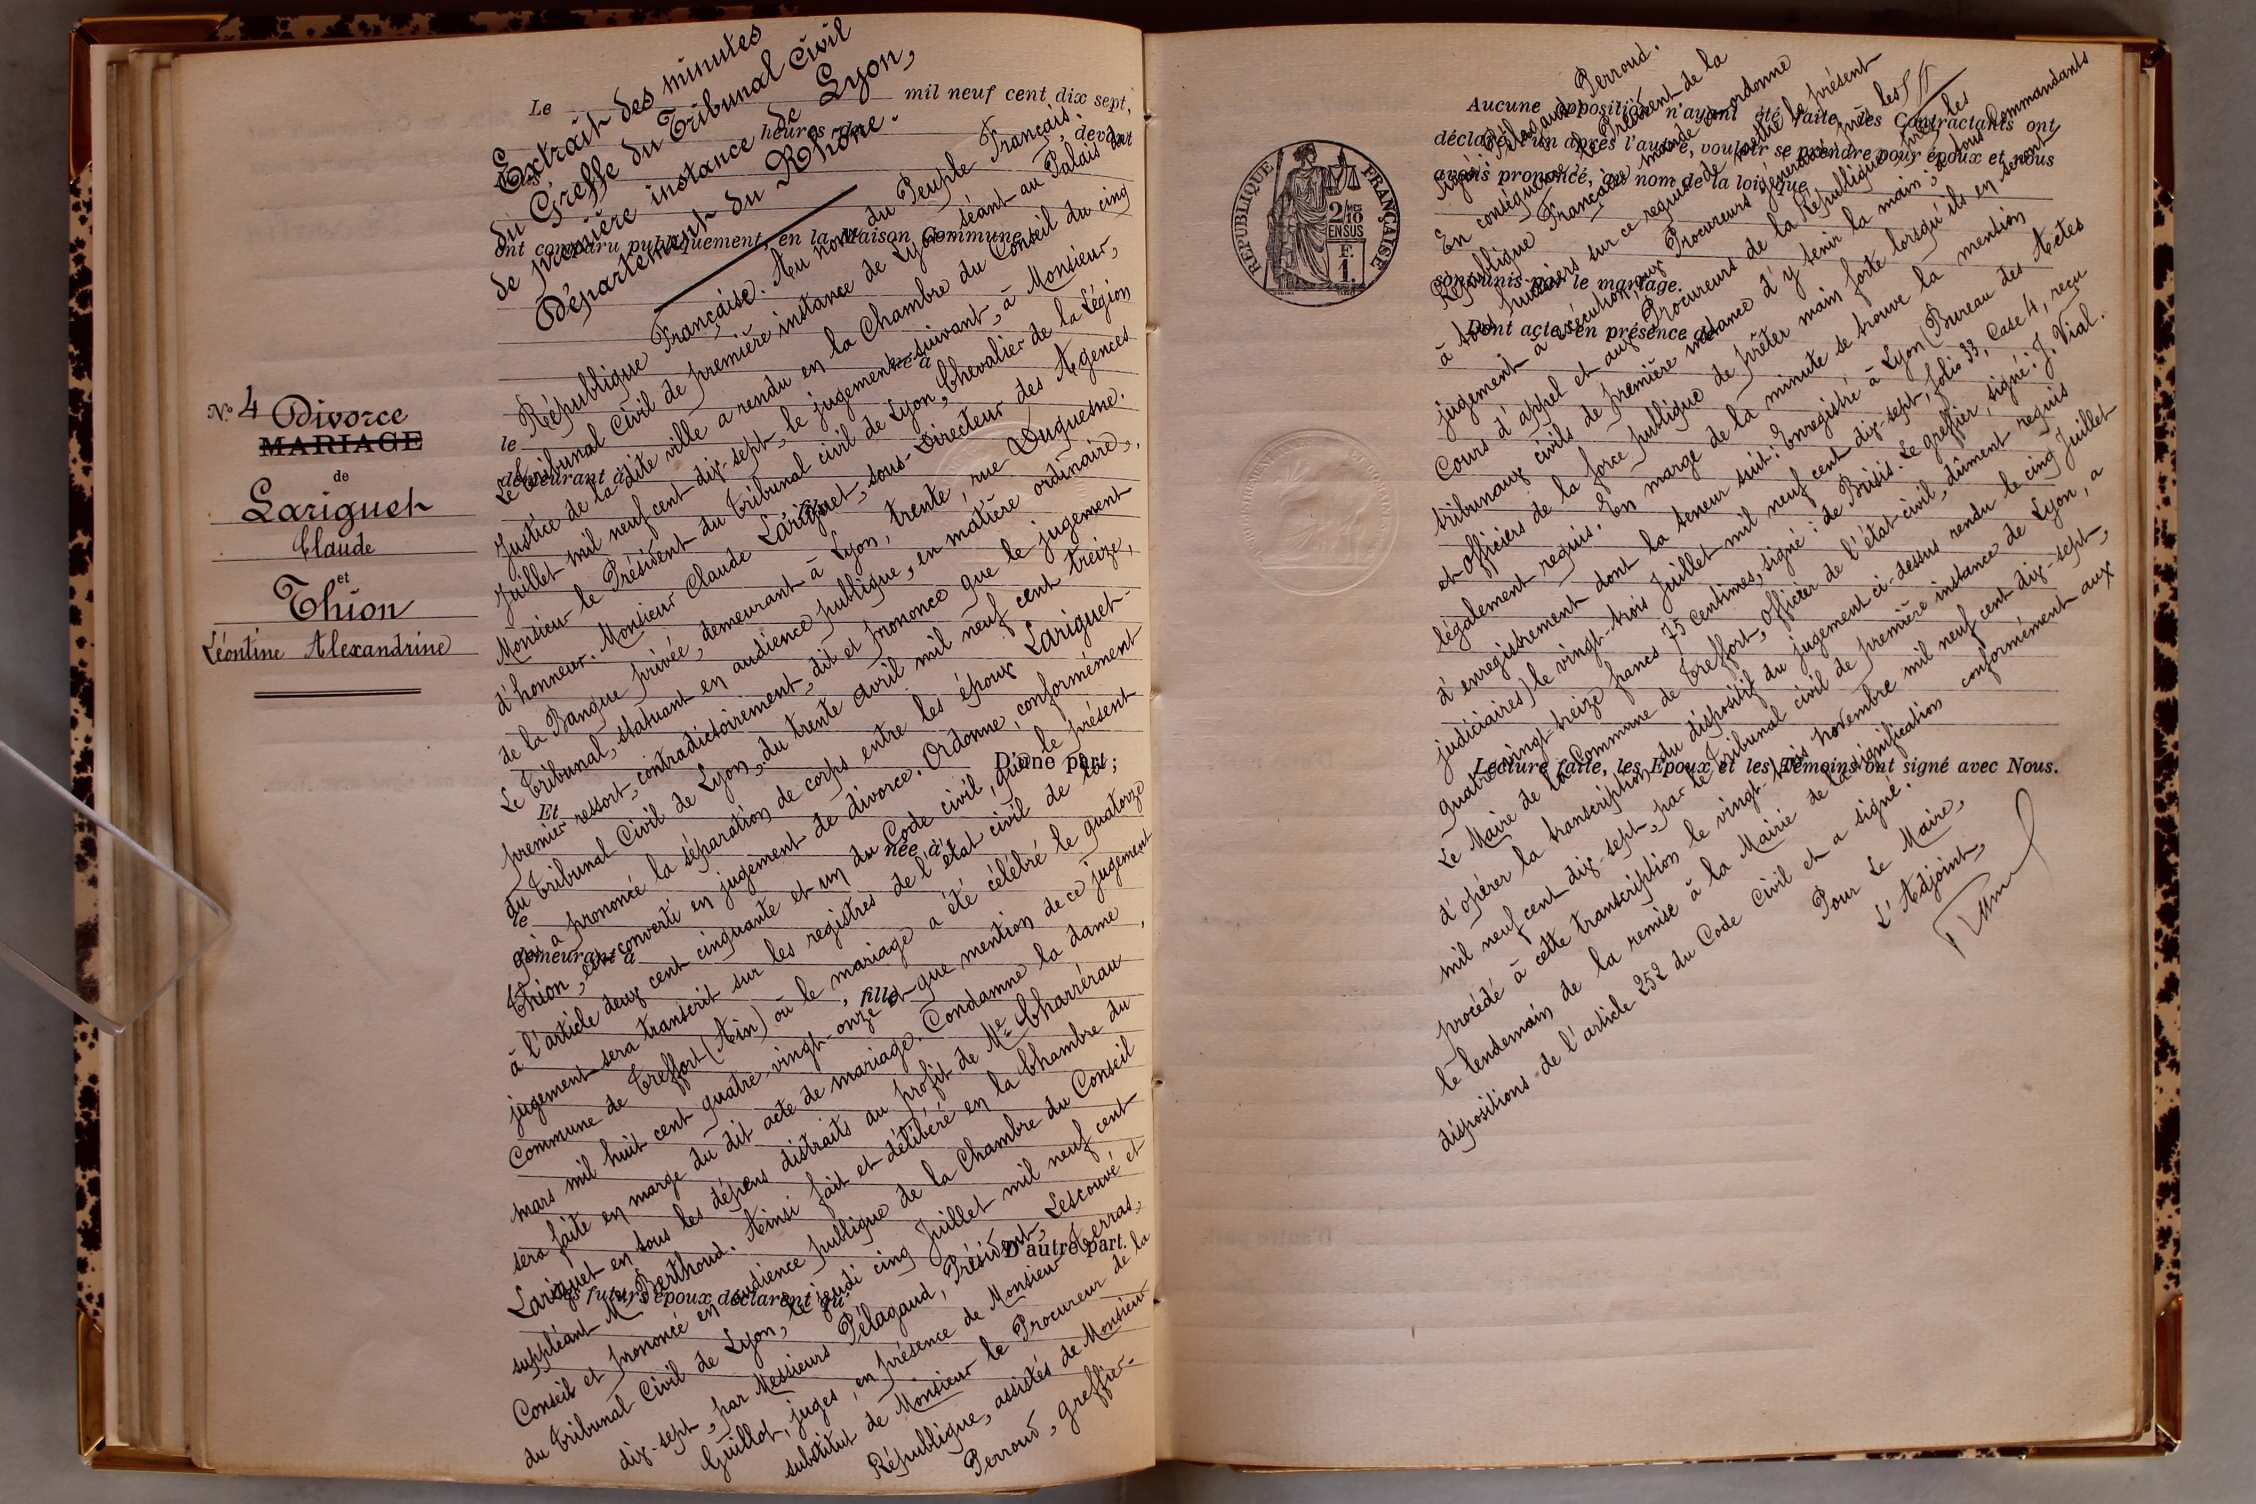 N° 4
Divorce
MARIAGE
de
Lariguet
Claude
et
Thion
Léontine Alexandrine
Le mil neuf cent dix sept,
heures de
devant
ont comparu publiquement, en la Maison Commune
le né à
demeurant à
fils
D'une part;
Et
née à
le
demeurant à
, fille
D'autre part.
Les futurs époux déclarent qu'
Extrait des minutes
du Greffe du Tribunal Civil
de première instance de Lyon,
Département du Rhône.
République Française. Au nom du Peuple Français.
Le Tribunal Civil de première instance de Lyon séant au Palais de
Justice de la dite ville a rendu en la Chambre du Conseil du cinq
Juillet mil neuf cent dix-sept, le jugement suivant, à Monsieur,
Monsieur le Président du Tribunal civil de Lyon, Chevalier de la Légion
d'honneur. Monsieur Claude Lariguet, sous-Directeur des Agences
de la Banque privée, demeurant à Lyon, trente, rue Duguesne.
Le Tribunal, statuant en audience publique, en matière ordinaire,
premier ressort, contradictoirement, dit et prononce que le jugement
du Tribunal Civil de Lyon, du trente avril mil neuf cent treize,
qui a prononcé la séparation de corps entre les époux Lariguet-
Thion, est converti en jugement de divorce. Ordonne, conformément
à l'article deux cent cinquante et un du Code civil, que le présent
jugement sera transcrit sur les registres de l'état civil de la
Commune de Treffort (Ain) où le mariage a été célébré le quatorze
mars mil huit cent quatre-vingt-onze et que mention de ce jugement
sera faite en marge du dit acte de mariage. Condamne la dame
Lariguet en tous les dépens distraits au profit de Me Charrérau,
suppléant Me Berthoud. Ainsi fait et délibéré en la Chambre du
Conseil et prononcé en audience publique de la Chambre du Conseil
du Tribunal Civil de Lyon, le jeudi cinq Juillet mil neuf cent
dix-sept, par Messieurs Pélagaud, Président, Lescouvé et
Guillot, juges, en présence de Monsieur Ferras,
substitut de Monsieur le Procureur de la
République, assistés de Monsieur
Perroud, greffier.
REPUBLIQUE FRANÇAISE
2/10
EN SUS
F.
1.
Aucune opposition n'ayant été faite, les Contractants ont
déclaré l'un après l'autre, vouloir se prendre pour époux et nous
avons prononcé, au nom de la loi, que
sont unis par le mariage.
Dont acte, en présence de
Lecture faite, les Epoux et les Témoins ont signé avec Nous.
Signé: Pélagaud, Perroud.
En conséquence, le Président de la
République Française mande et ordonne
à tous huissiers sur ce requis de mettre le présent
jugement à exécution, aux Procureurs généraux près les
Cours d'appel et aux Procureurs de la République près les
tribunaux civils de première instance d'y tenir la main; à tous Commandants
et officiers de la force publique de prêter main forte lorsqu'ils en seront
légalement requis. En marge de la minute se trouve la mention
d'enregistrement dont la teneur suit: Enregistré à Lyon (Bureau des Actes
judiciaires) le vingt-trois Juillet mil neuf cent dix-sept, folio 33, Case 4, reçu
quatre-vingt-treize francs 75 centimes, signé: de Brisis. Le greffier, signé: J. Vial.
Le Maire de la Commune de Treffort, Officier de l'état civil, dûment requis
d'opérer la transcription du dispositif du jugement ci-dessus rendu le cinq Juillet
mil neuf cent dix-sept, par le Tribunal civil de première instance de Lyon, a
procédé à cette transcription le vingt-trois novembre mil neuf cent dix-sept,
le lendemain de la remise à la Mairie de la signification conformément aux
dispositions de l'article 252 du Code Civil et a signé.
Pour Le Maire,
L'Adjoint,